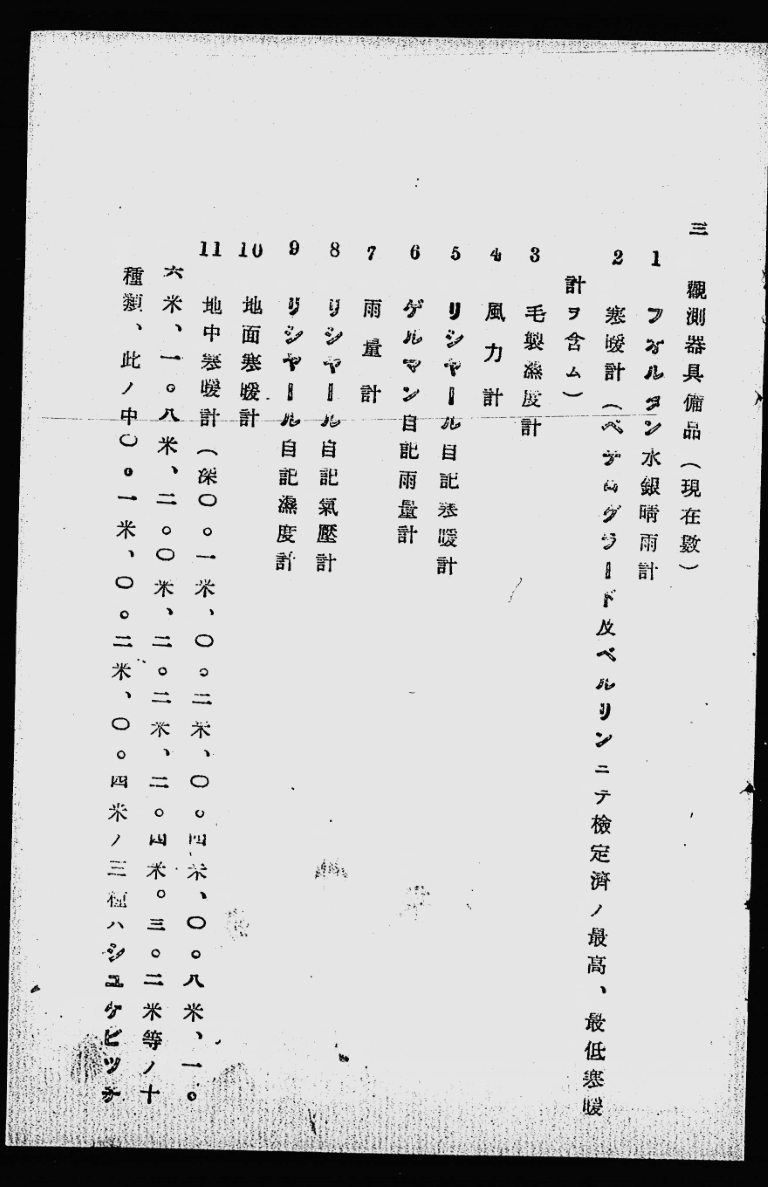 三　觀測器具備品（現在數）
1　フオルタン水銀晴雨計
2　寒暖計（ペテログラード及ベルリンニテ檢定濟ノ最高、最低寒暖
計ヲ含ム）
3　毛製濕度計
4　風力計
5　リシヤール自記寒暖計
6　ゲルマン自記雨量計
7　雨量計
8　リシヤール自記氣壓計
9　リシヤール自記濕度計
10　地面寒暖計
11　地中寒暖計（深〇。一米、〇。二米、〇。四米、〇。八米、一。
六米、一。八米、二。〇米、二。二米、二。四米。三。二米等ノ十
種類、此ノ中〇。一米、〇。二米、〇。四米ノ三種ハシユケビツチ